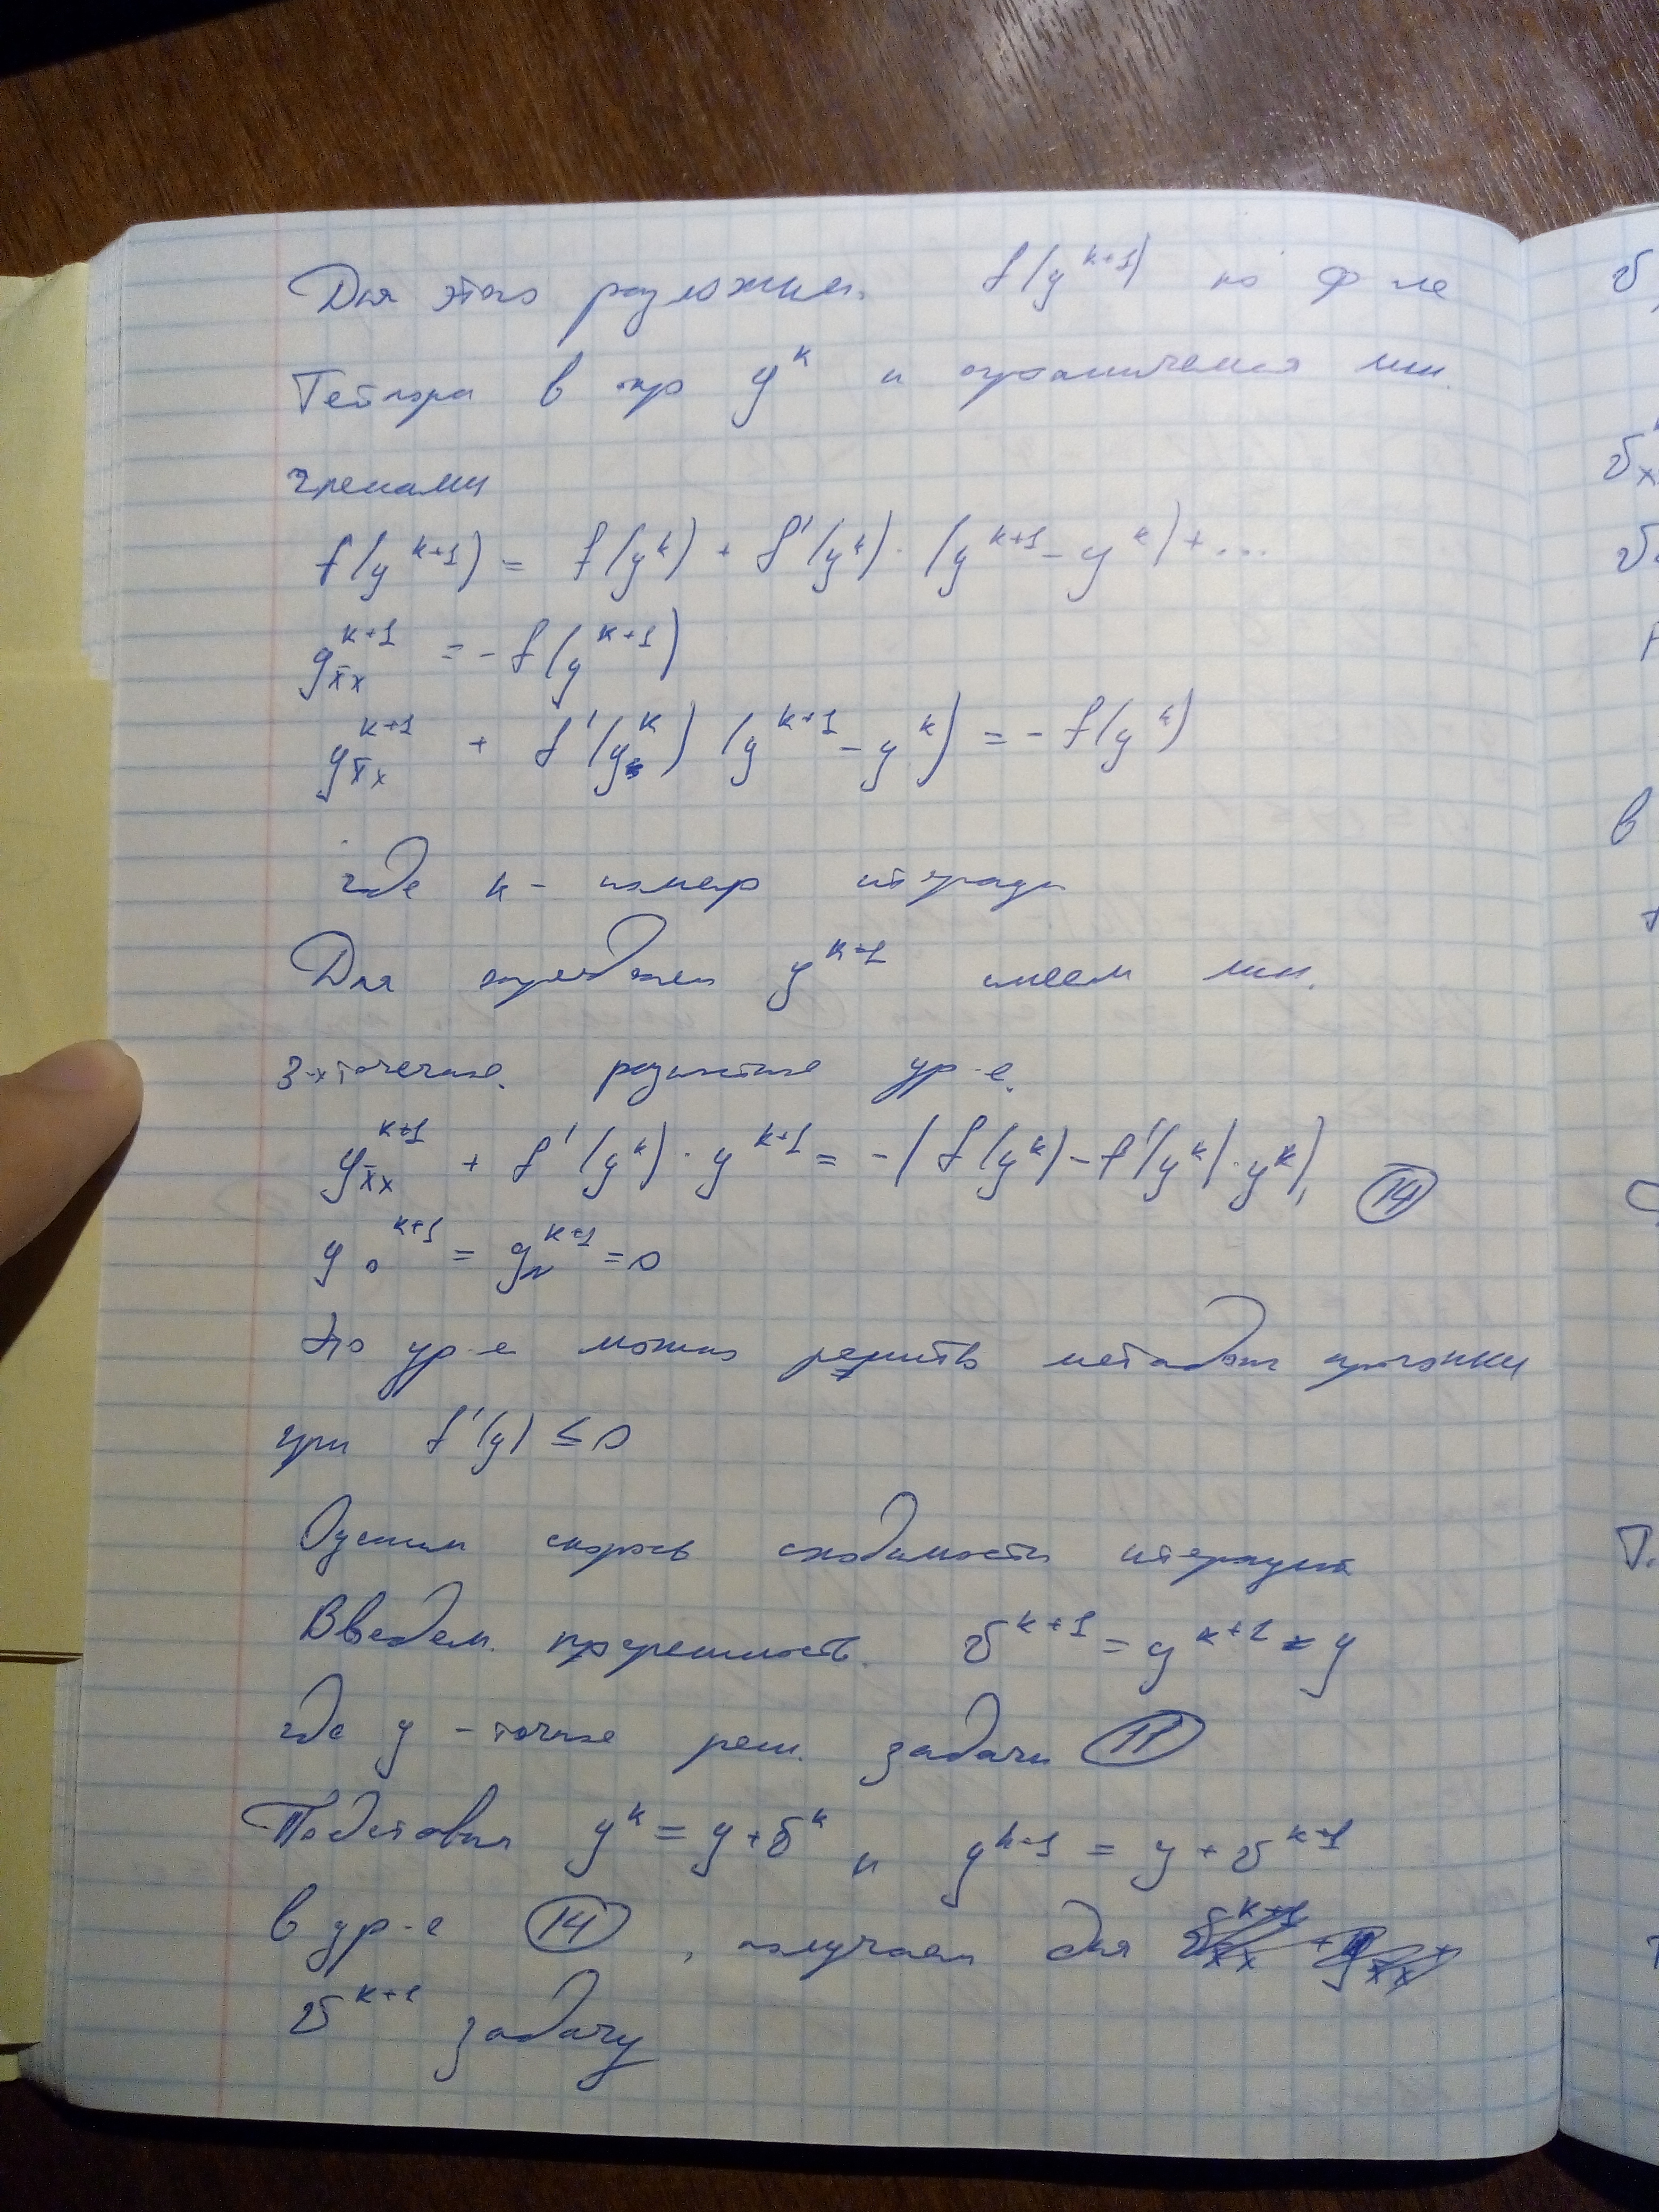 Для этого разложим f(y^{k+1}) по ф-ле
Тейлора в окр y^k и ограничимся лин.
членами
f(y^{k+1}) = f(y^k) + f'(y^k) · (y^{k+1} - y^k) + ...
y_{x̄x}^{k+1} = - f(y^{k+1})
y_{x̄x}^{k+1} + f'(y^k) (y^{k+1} - y^k) = - f(y^k)
где k - номер итерации
Для определен y^{k+1} имеем лин.
3-хточечное. разностное ур-е.
y_{x̄x}^{k+1} + f'(y^k) · y^{k+1} = -(f(y^k) - f'(y^k) · y^k), (14)
y_0^{k+1} = y_N^{k+1} = 0
Это ур-е можно решить методом прогонки
при f'(y) ≤ 0
Оценим скорость сходимости итераций
Введем. погрешность. υ^{k+1} = y^{k+1} - y
где y - точное реш. задачи (11)
Подставил y^k = y + υ^k и y^{k+1} = y + υ^{k+1}
в ур-е (14), получаем для
υ^{k+1} задачу